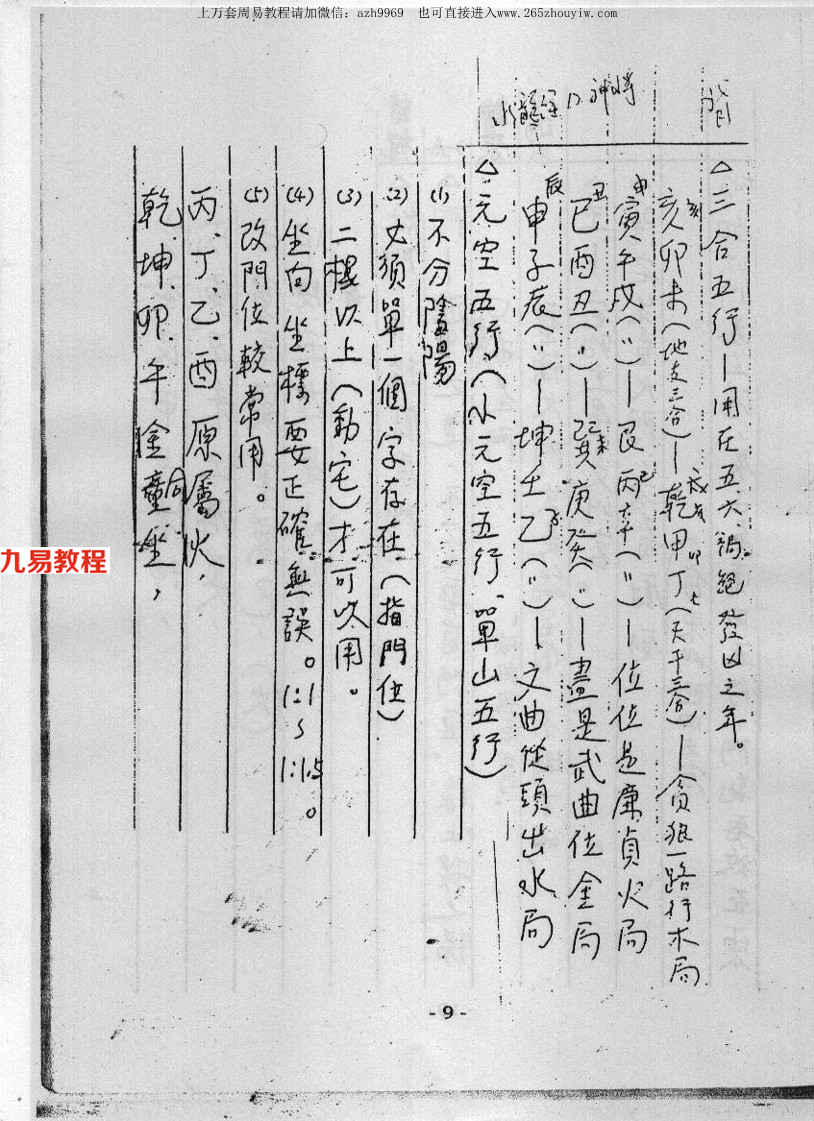 上万套周易教程请加微信：azh9969 也可直接进入www.265zhouyiw.com
△三合五行－用在五六、禍絕發凶之年。
亥卯未(地支三合)－乾甲丁(天干三合)－貪狼一路行木局
寅午戌(〃)－艮丙辛(〃)－位位是廉貞火局
巳酉丑(〃)－巽庚癸(〃)－盡是武曲位金局
申子辰(〃)－坤壬乙(〃)－文曲從頭出水局
△元空五行(小元空五行、單山五行)
(1)不分陰陽
(2)必須單一個字存在(指門位)
(3)二樓以上(動宅)才可以用。
(4)坐向坐標要正確無誤。1:1~1:1.5。
(5)改門位較常用。
丙、丁、乙、酉原屬火，
乾、坤、卯、午金同坐，
九易教程
- 9 -